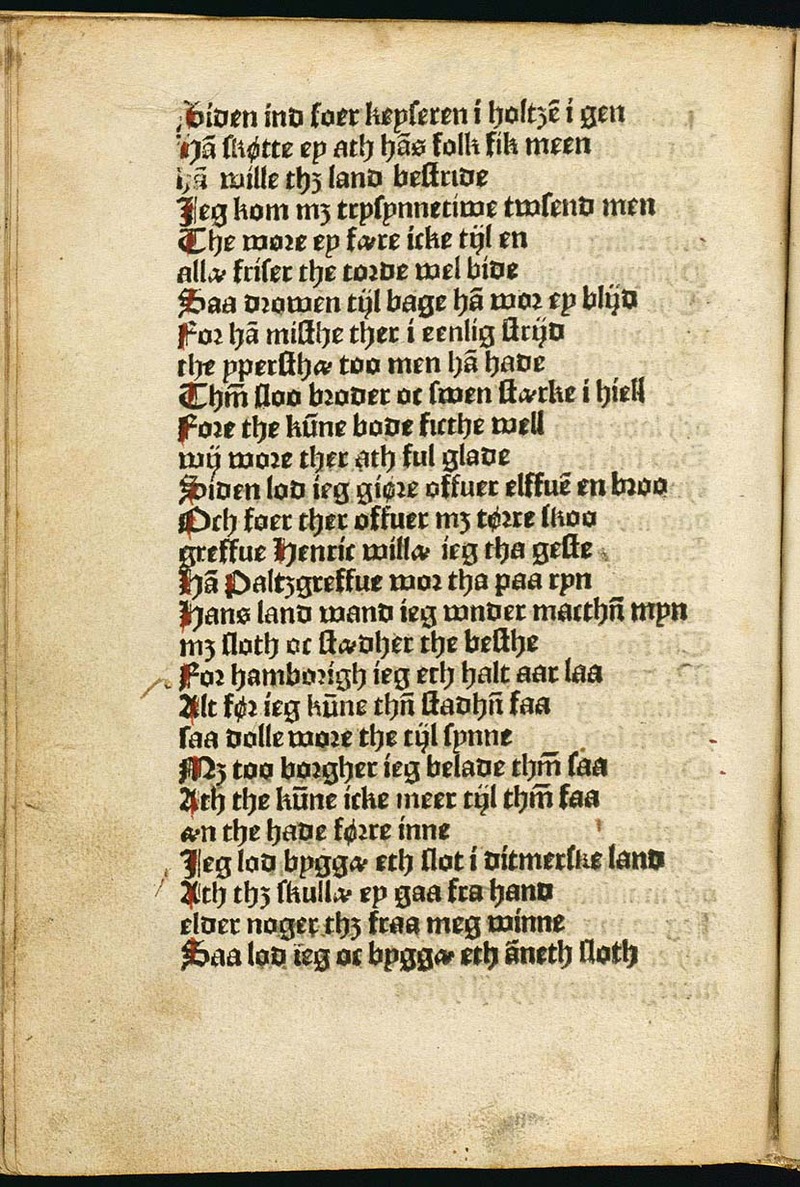 Siden ind foer keyseren i holtzē i gen
Hā skøtte ey ath hās folk fik meen
hā wille thꝫ land bestride
Jeg kom mꝫ trysynnetiwe twsend men
The wore ey fære icke tijl en
allæ friser the torde wel bide
Saa drowen tijl bage hā wor ey blijd
For hā misthe ther i eenlig strijd
the yppersthæ too men hā hade
Thm̄ sloo broder oc swen stærke i hiell
Fore the kūne bode ficthe well
wij wore ther ath ful glade
Siden lod ieg giøre offuer elffuē en broo
Och foer ther offuer mꝫ tørre skoo
greffue Henric willæ ieg tha geste
Hā Paltzgreffue wor tha paa ryn
Hans land wand ieg wnder macthn̄ myn
mꝫ sloth oc stædher the besthe
For hamborigh ieg eth halt aar laa
Alt før ieg kūne thn̄ stadhn̄ faa
saa dolle wore the tijl synne
Mꝫ too borgher ieg belade thm̄ saa
Ath the kūne icke meer tijl thm̄ faa
æn the hade førre inne
Jeg lod byggæ eth slot i ditmerske land
Ath thꝫ skullæ ey gaa fra hand
elder noger thꝫ fraa meg winne
Saa lod ieg oc byggæ eth āneth sloth